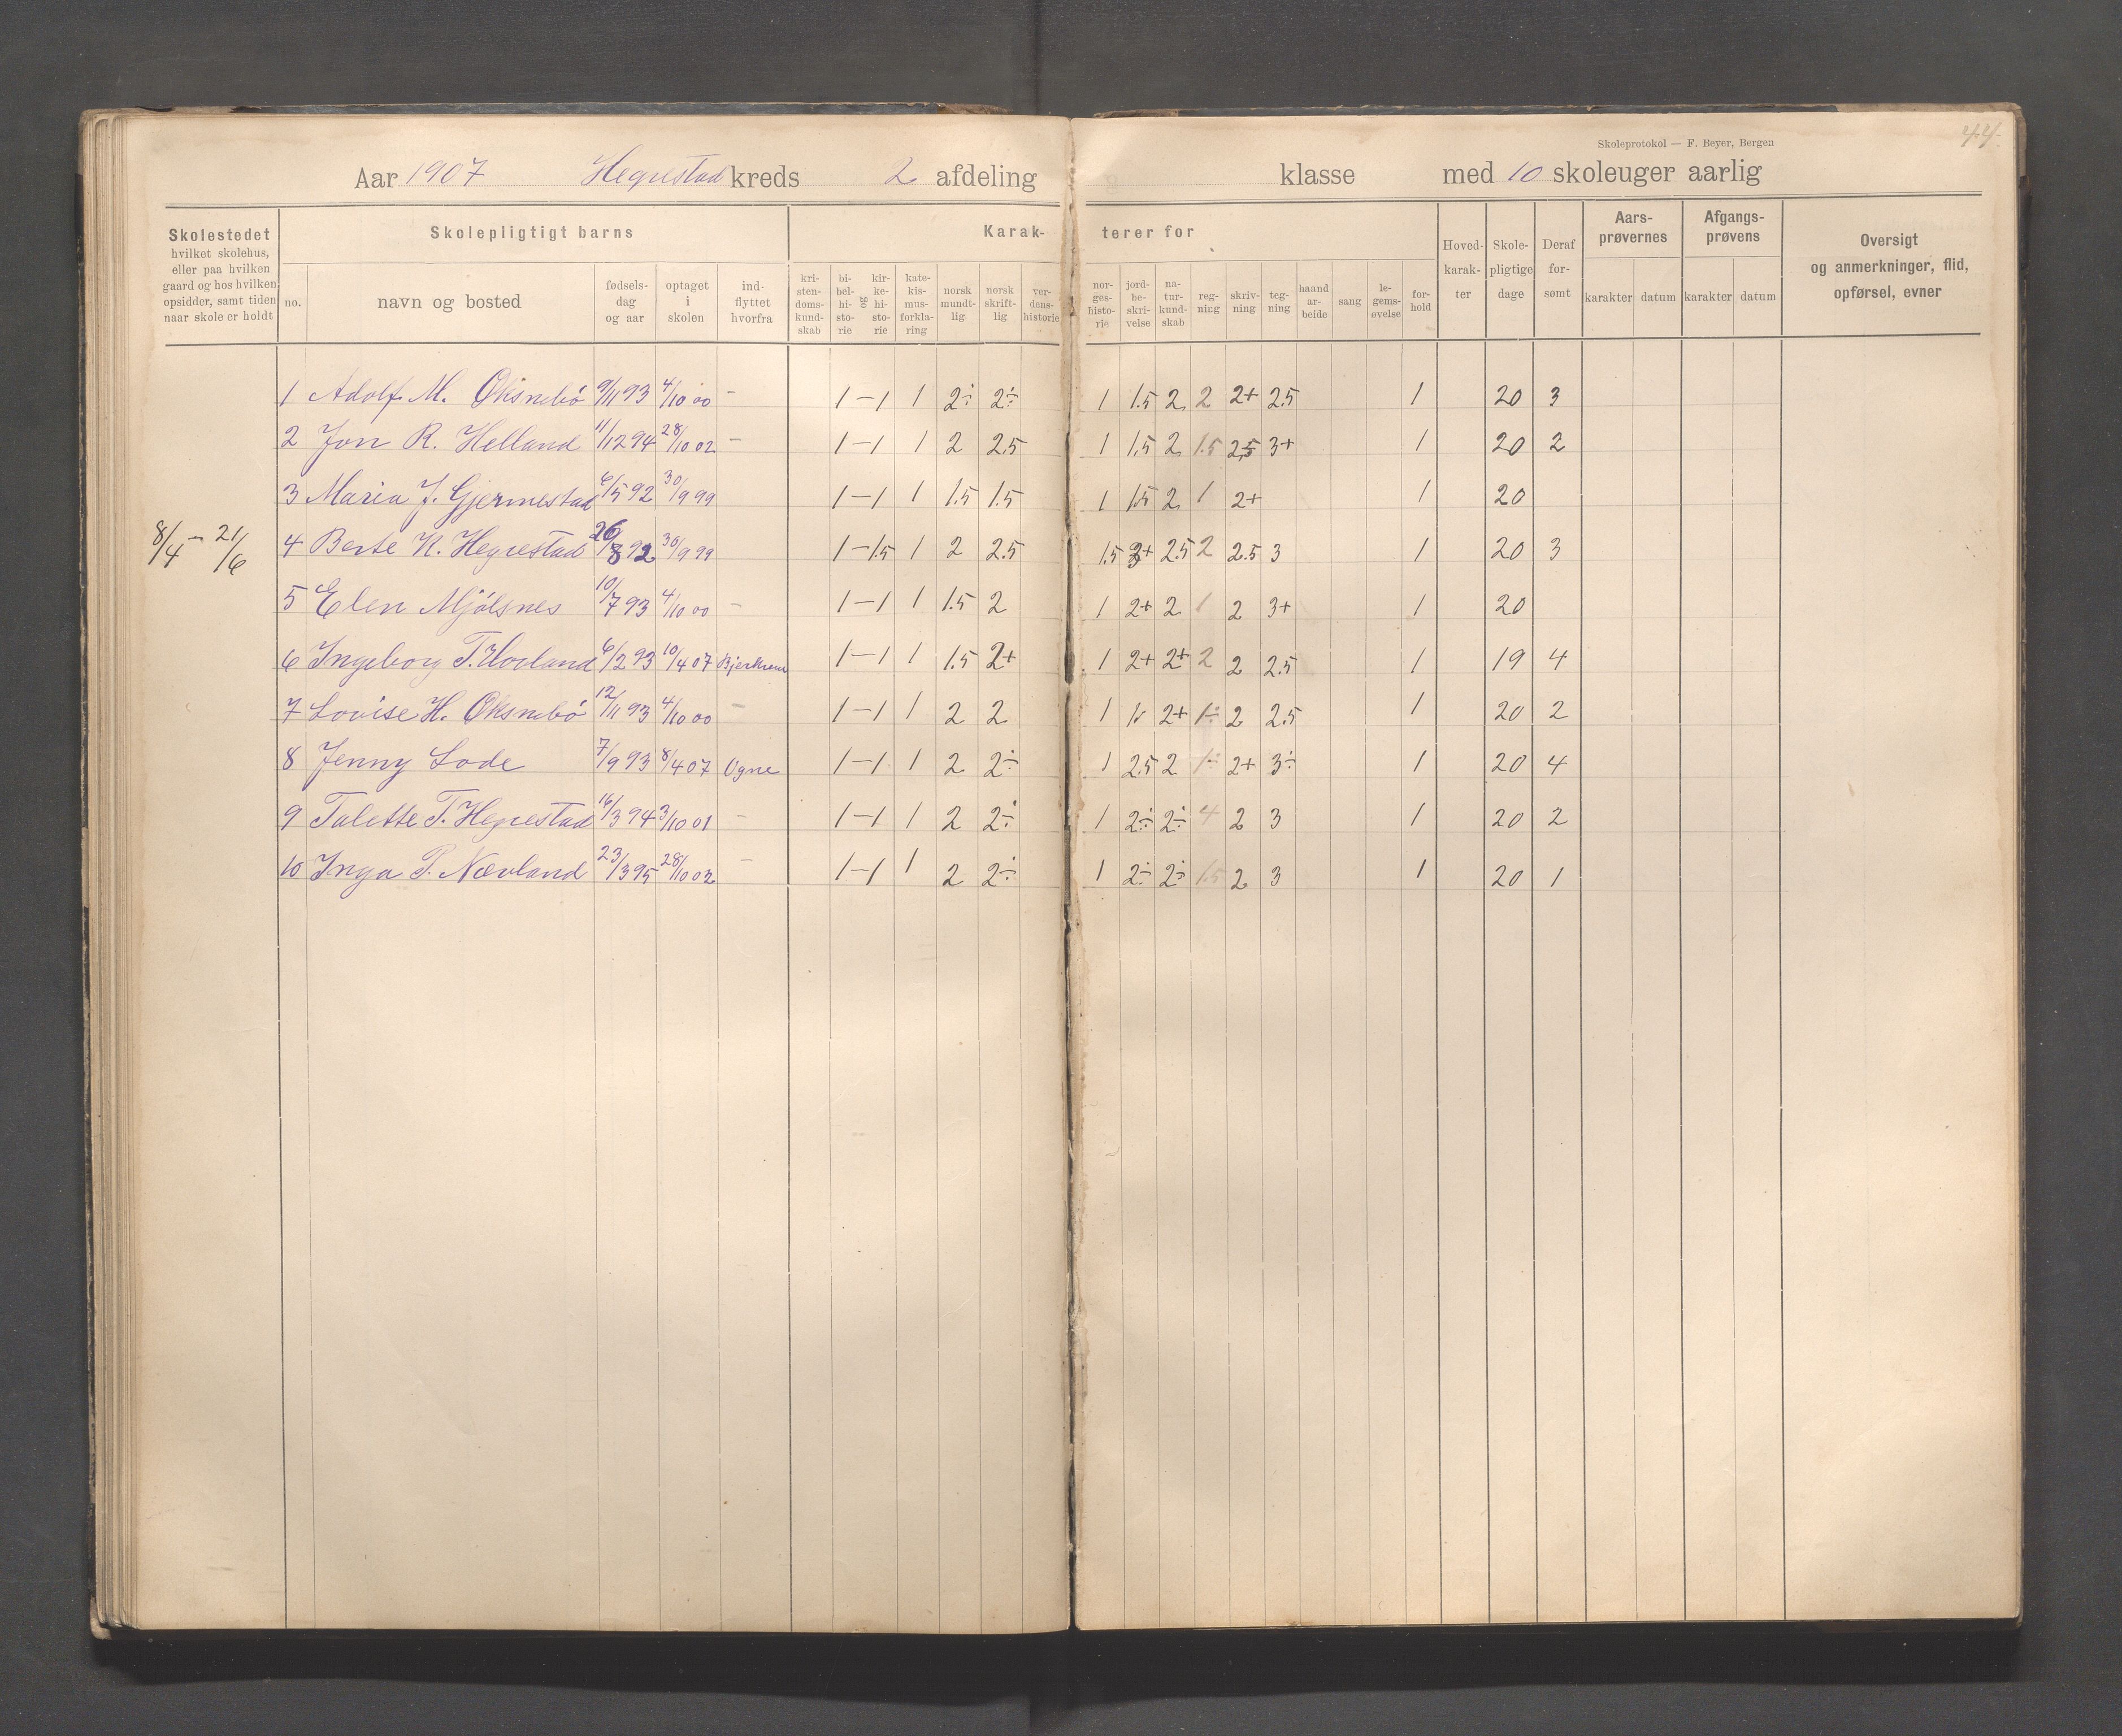 44.
Skoleprotokol — F. Beyer, Bergen
Aar 1907 Hegrestad kreds 2 afdeling klasse med 10 skoleuger aarlig
Skolestedet hvilket skolehus, eller paa hvilken gaard og hos hvilken opsidder, samt tiden naar skole er holdt
Skolepligtigt barns
Karakterer for
no. navn og bosted fødselsdag og aar optaget i skolen indflyttet hvorfra
kristendomskundskab bibelhistorie og kirkehistorie katekismusforklaring norsk mundtlig norsk skriftlig verdenshistorie
norgeshistorie jordbeskrivelse naturkundskab regning skrivning tegning haandarbeide sang legemsøvelse forhold
Hovedkarakter Skolepligtige dage Deraf forsømt
Aarsprøvernes karakter datum
Afgangsprøvens karakter datum
Oversigt og anmerkninger, flid, opførsel, evner
1 Adolf M. Oksnebö 9/11 93 4/10 00 – 1 – 1 1 2÷ 2÷ 1 1.5 2 2 2+ 2.5 1 20 3
2 Jon R. Helland 11/12 94 28/10 02 – 1 – 1 1 2 2.5 1 1.5 2 1.5 2.5 3+ 1 20 2
3 Maria J. Gjermestad 6/5 92 30/9 99 1 – 1 1 1.5 1.5 1 1.5 2 1 2+ 1 20
8/4 – 21/6
4 Berte N. Hegrestad 26/8 92 30/9 99 1 – 1.5 1 2 2.5 1.5 3+ 2.5 2 2.5 3 1 20 3
5 Elen Mjölsnes 10/7 93 4/10 00 – 1 – 1 1 1.5 2 1 2+ 2 1 2 3+ 1 20
6 Ingeborg T. Hovland 6/2 93 10/4 07 Bjerkreim 1 – 1 1 1.5 2+ 1 2+ 2+ 2 2 2.5 1 19 4
7 Lovise H. Oksnebö 12/11 93 4/10 00 – 1 – 1 1 2 2 1 2+ 1÷ 2 2.5 1 20 2
8 Jenny Lode 7/9 93 8/4 07 Ogne 1 – 1 1 2 2÷ 1 2.5 2 1÷ 2+ 3÷ 1 20 4
9 Talette T. Hegrestad 16/3 94 3/10 01 – 1 – 1 1 2 2÷ 1 2÷ 2÷ 4 2 3 1 20 2
10 Inga P. Nævland 23/3 95 28/10 02 – 1 – 1 1 2 2÷ 1 2÷ 2÷ 1.5 2 3 1 20 1